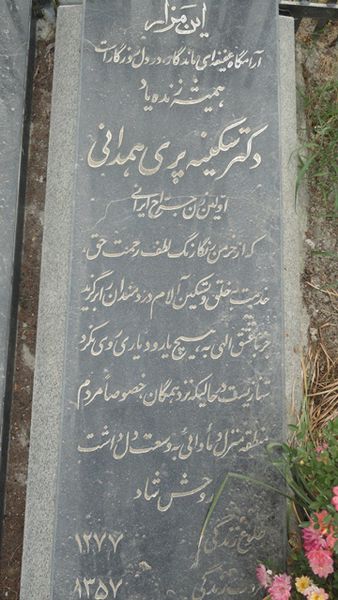 این مزار
آرامگاه عفیفه‌ای ماندگار در دل روزگارات
همیشه زنده یاد
دکتر سکینه پری همدانی
اولین زن جراح ایرانی
که از خرمن رنگارنگ لطف رحمت حق،
خدمت به خلق و تسکین آلام دردمندان را برگزید
جز با عشق الهی به هیچ یار و دیاری روی نکرد
تنها زیست در حالیکه نزد همگان خصوصا مردم
منطقه منزل و مأوائی به وسعت دل داشت
روحش شاد
طلوع زندگی ۱۲۷۷
زندگی ۱۳۵۷